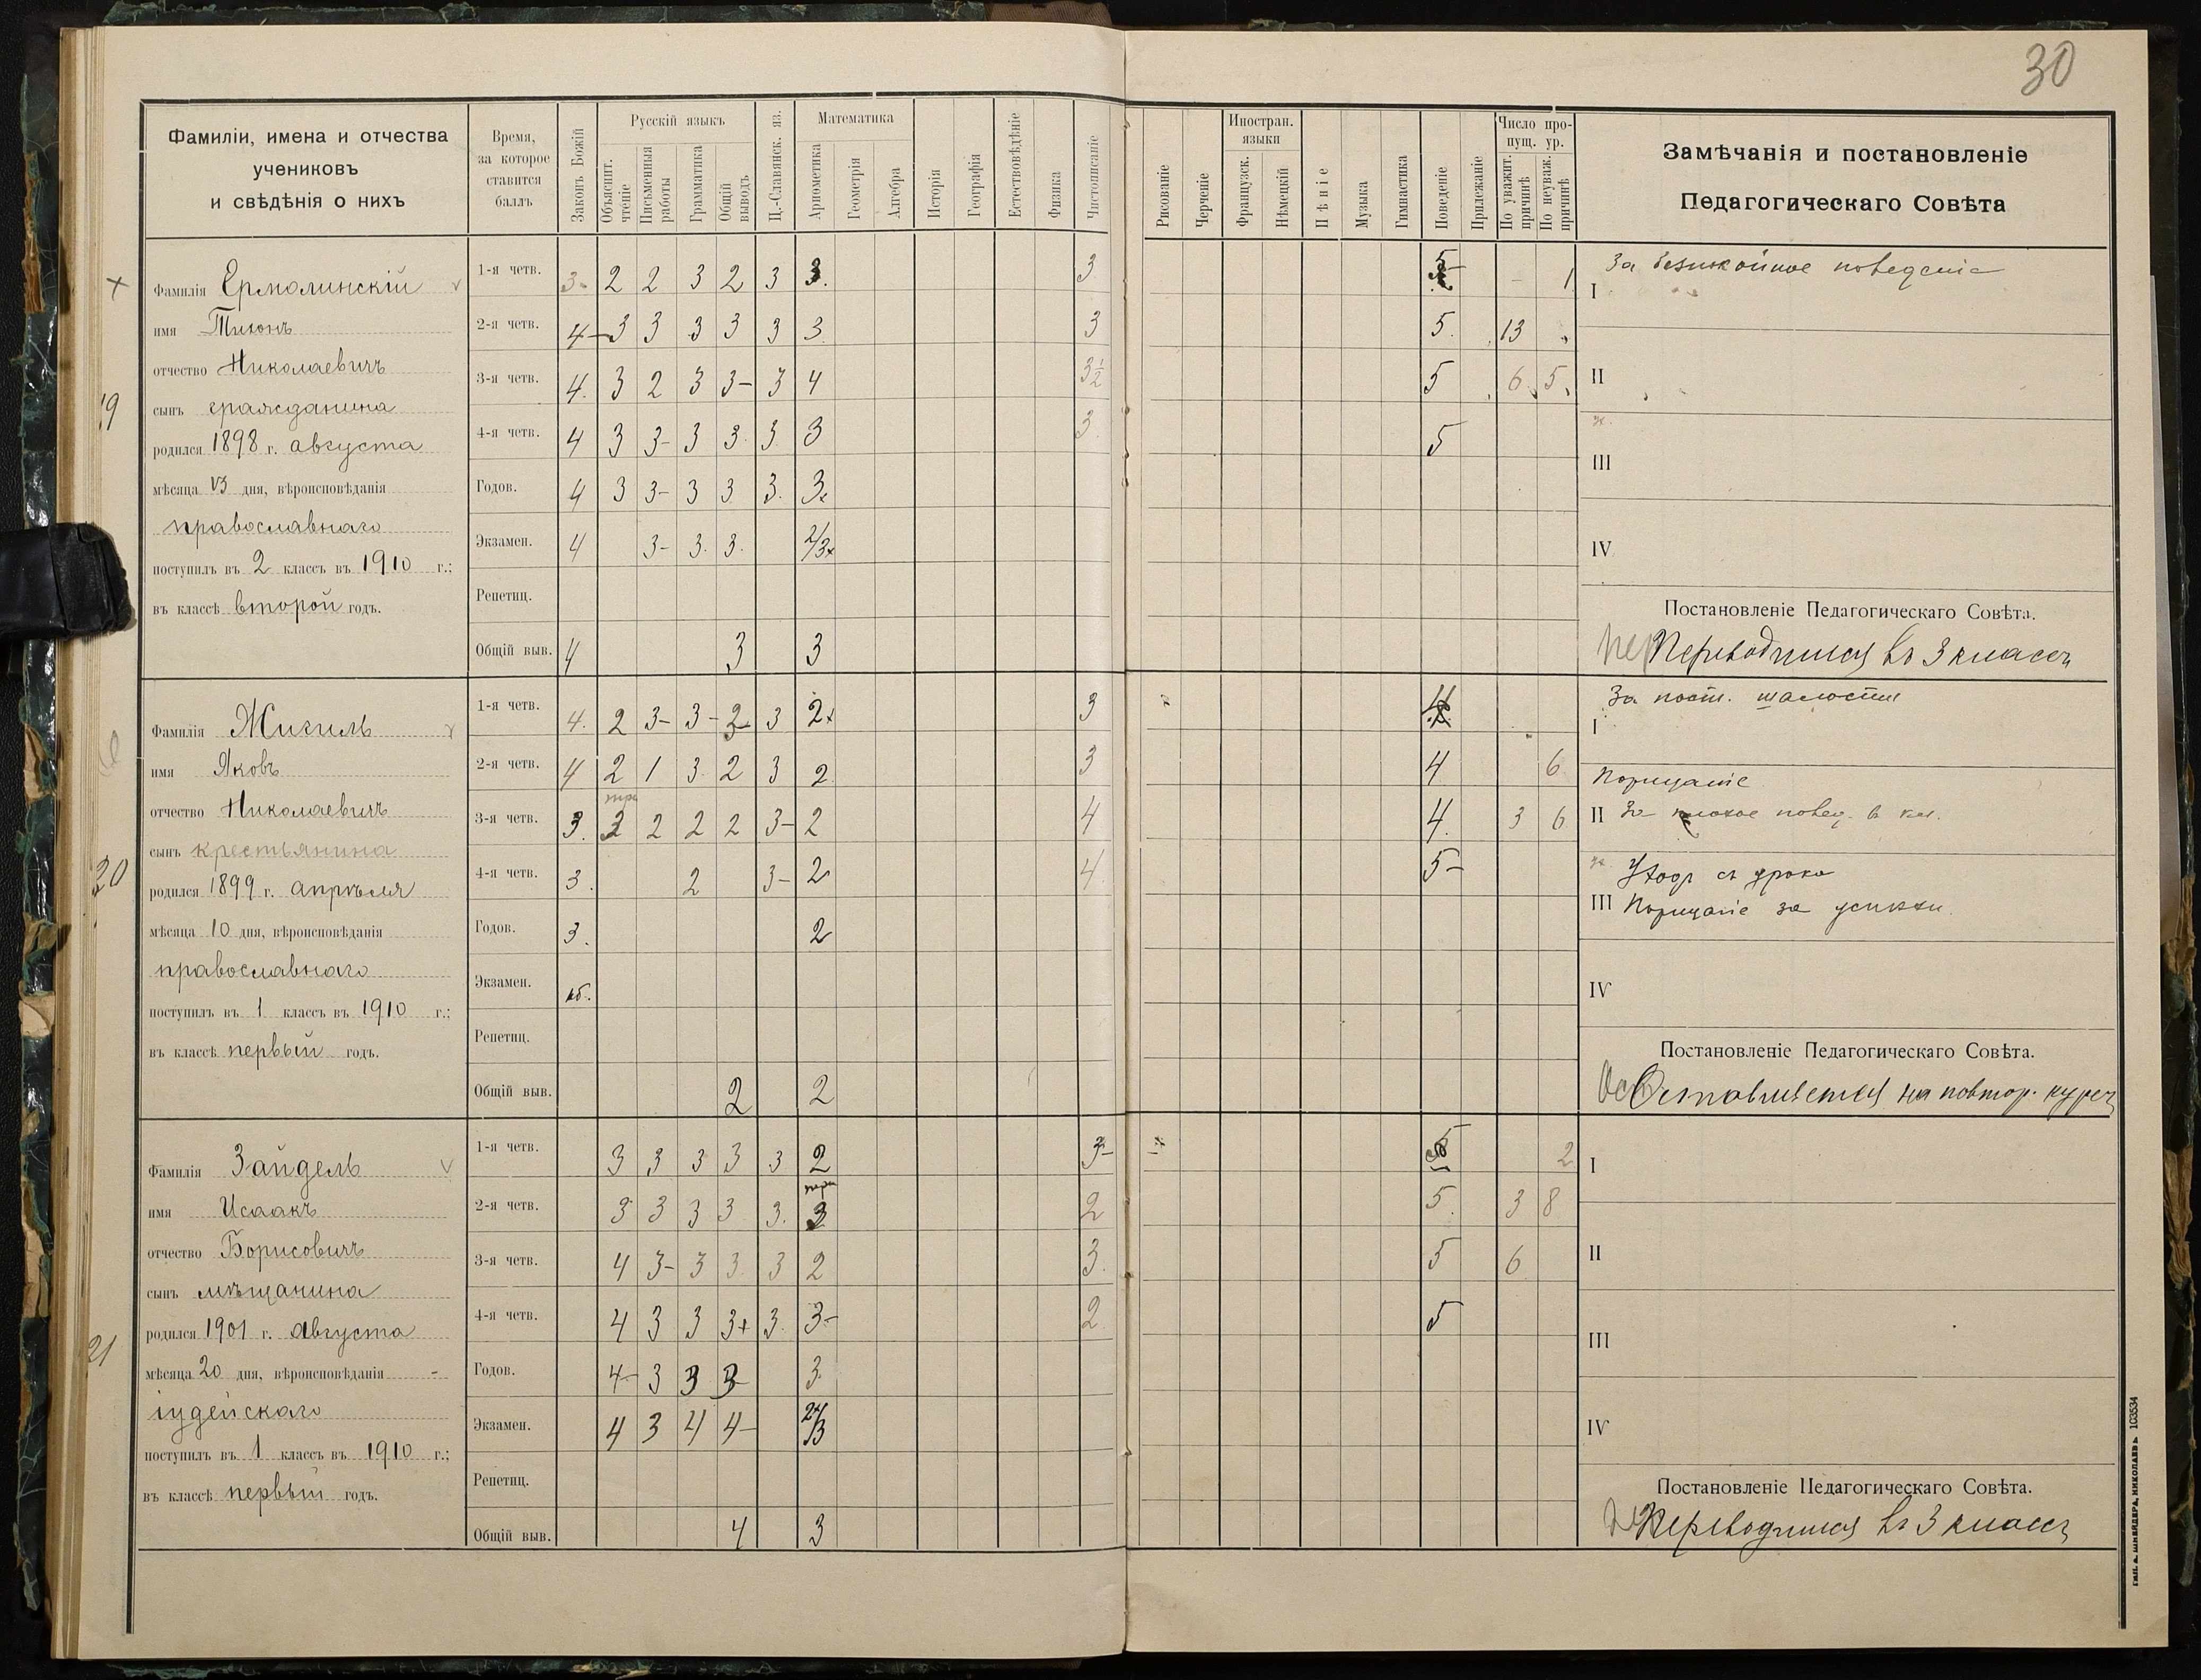 30
Фамиліи, имена и отчества
учениковъ
и свѣдѣнія о нихъ
Время,
за которое
ставится
баллъ
Законъ Божій
Русскій языкъ
Объяснит. чтеніе
Письменныя работы
Грамматика
Общій выводъ
Ц.-Славянск. яз.
Математика
Ариѳметика
Геометрія
Алгебра
Исторія
Географія
Естествовѣдѣніе
Физика
Чистописаніе
Рисованіе
Черченіе
Иностран. языки
Французск.
Нѣмецкій
Пѣніе
Музыка
Гимнастика
Поведеніе
Прилежаніе
Число пропущ. ур.
По уважит. причинѣ
По неуваж. причинѣ
Замѣчанія и постановленіе
Педагогическаго Совѣта
19
Фамилія Ермолинскій
имя Тихонъ
отчество Николаевичъ
сынъ гражданина
родился 1898 г. августа
мѣсяца 13 дня, вѣроисповѣданія
православнаго
поступилъ въ 2 классъ въ 1910 г.;
въ классѣ второй годъ.
1-я четв. 3 2 2 3 2 3 3 3 5- - 1
2-я четв. 4- 3 3 3 3 3 3 3 5 13
3-я четв. 4 3 2 3 3- 3 4 3½ 5 6 5
4-я четв. 4 3 3- 3 3 3 3 3 5
Годов. 4 3 3- 3 3 3 3
Экзамен. 4 3- 3 3 2/3
Репетиц.
Общій выв. 4 3 3
За безпокойное поведеніе
I
II
III
IV
Постановленіе Педагогическаго Совѣта.
Переводится въ 3 классъ
20
Фамилія Жигиль
имя Яковъ
отчество Николаевичъ
сынъ крестьянина
родился 1899 г. апрѣля
мѣсяца 10 дня, вѣроисповѣданія
православнаго
поступилъ въ 1 классъ въ 1910 г.;
въ классѣ первый годъ.
1-я четв. 4 2 3- 3- 2 3 2+ 3 4
2-я четв. 4 2 1 3 2 3 2 3 4 6
3-я четв. 3 3 2 2 2 3- 2 4 4 3 6
4-я четв. 3 2 3- 2 4 5-
Годов. 3 2
Экзамен.
Репетиц.
Общій выв. 2 2
За пост. шалости
I
Порицаніе
II За плохое повед. в кл.
Уход съ урока
III Порицаніе за успѣхи
IV
Постановленіе Педагогическаго Совѣта.
Оставляется на повтор. курсъ
21
Фамилія Зайдель
имя Исаакъ
отчество Борисовичъ
сынъ мѣщанина
родился 1901 г. августа
мѣсяца 20 дня, вѣроисповѣданія
іудейскаго
поступилъ въ 1 классъ въ 1910 г.;
въ классѣ первый годъ.
1-я четв. 3 3 3 3 3 2 3- 5 2
2-я четв. 3 3 3 3 3 3 2 5 3 8
3-я четв. 4 3- 3 3 3 2 3 5 6
4-я четв. 4 3 3 3+ 3 3- 2 5
Годов. 4- 3 3 3 3
Экзамен. 4 3 4 4- 2+/3
Репетиц.
Общій выв. 4 3
I
II
III
IV
Постановленіе Педагогическаго Совѣта.
Переводится въ 3 классъ
103534